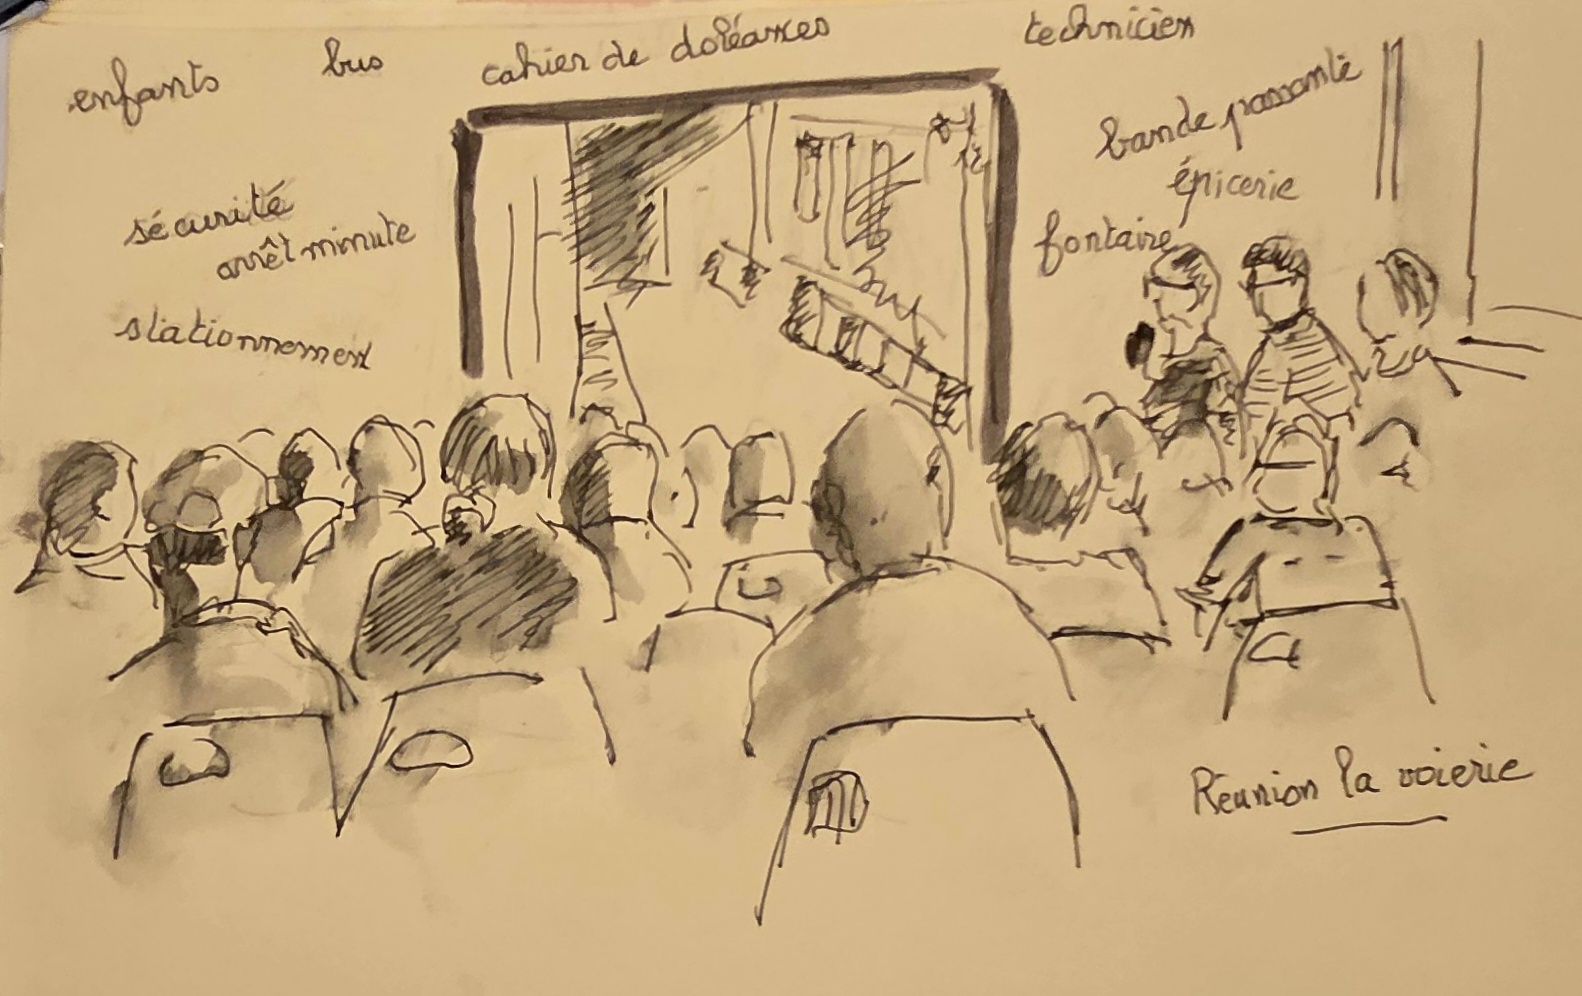 enfants bus cahier de doléances technicien
bande passante
épicerie
fontaine
sécurité
arrêt minute
stationnement
Réunion la voierie